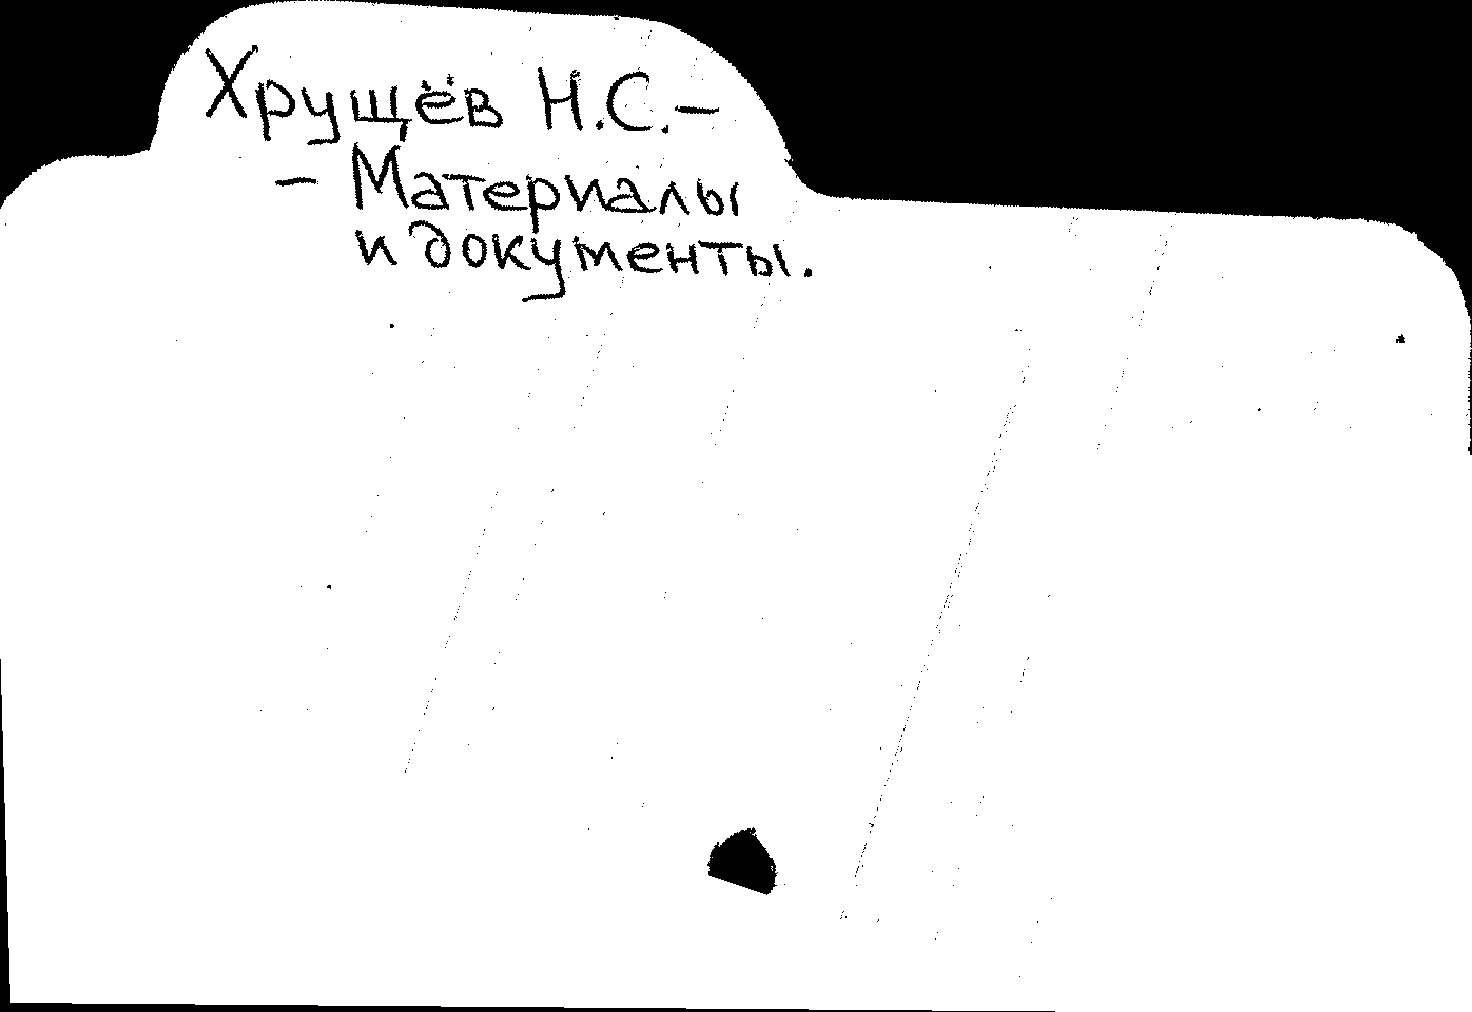 Хрущёв Н.С.–
– Материалы
и документы.